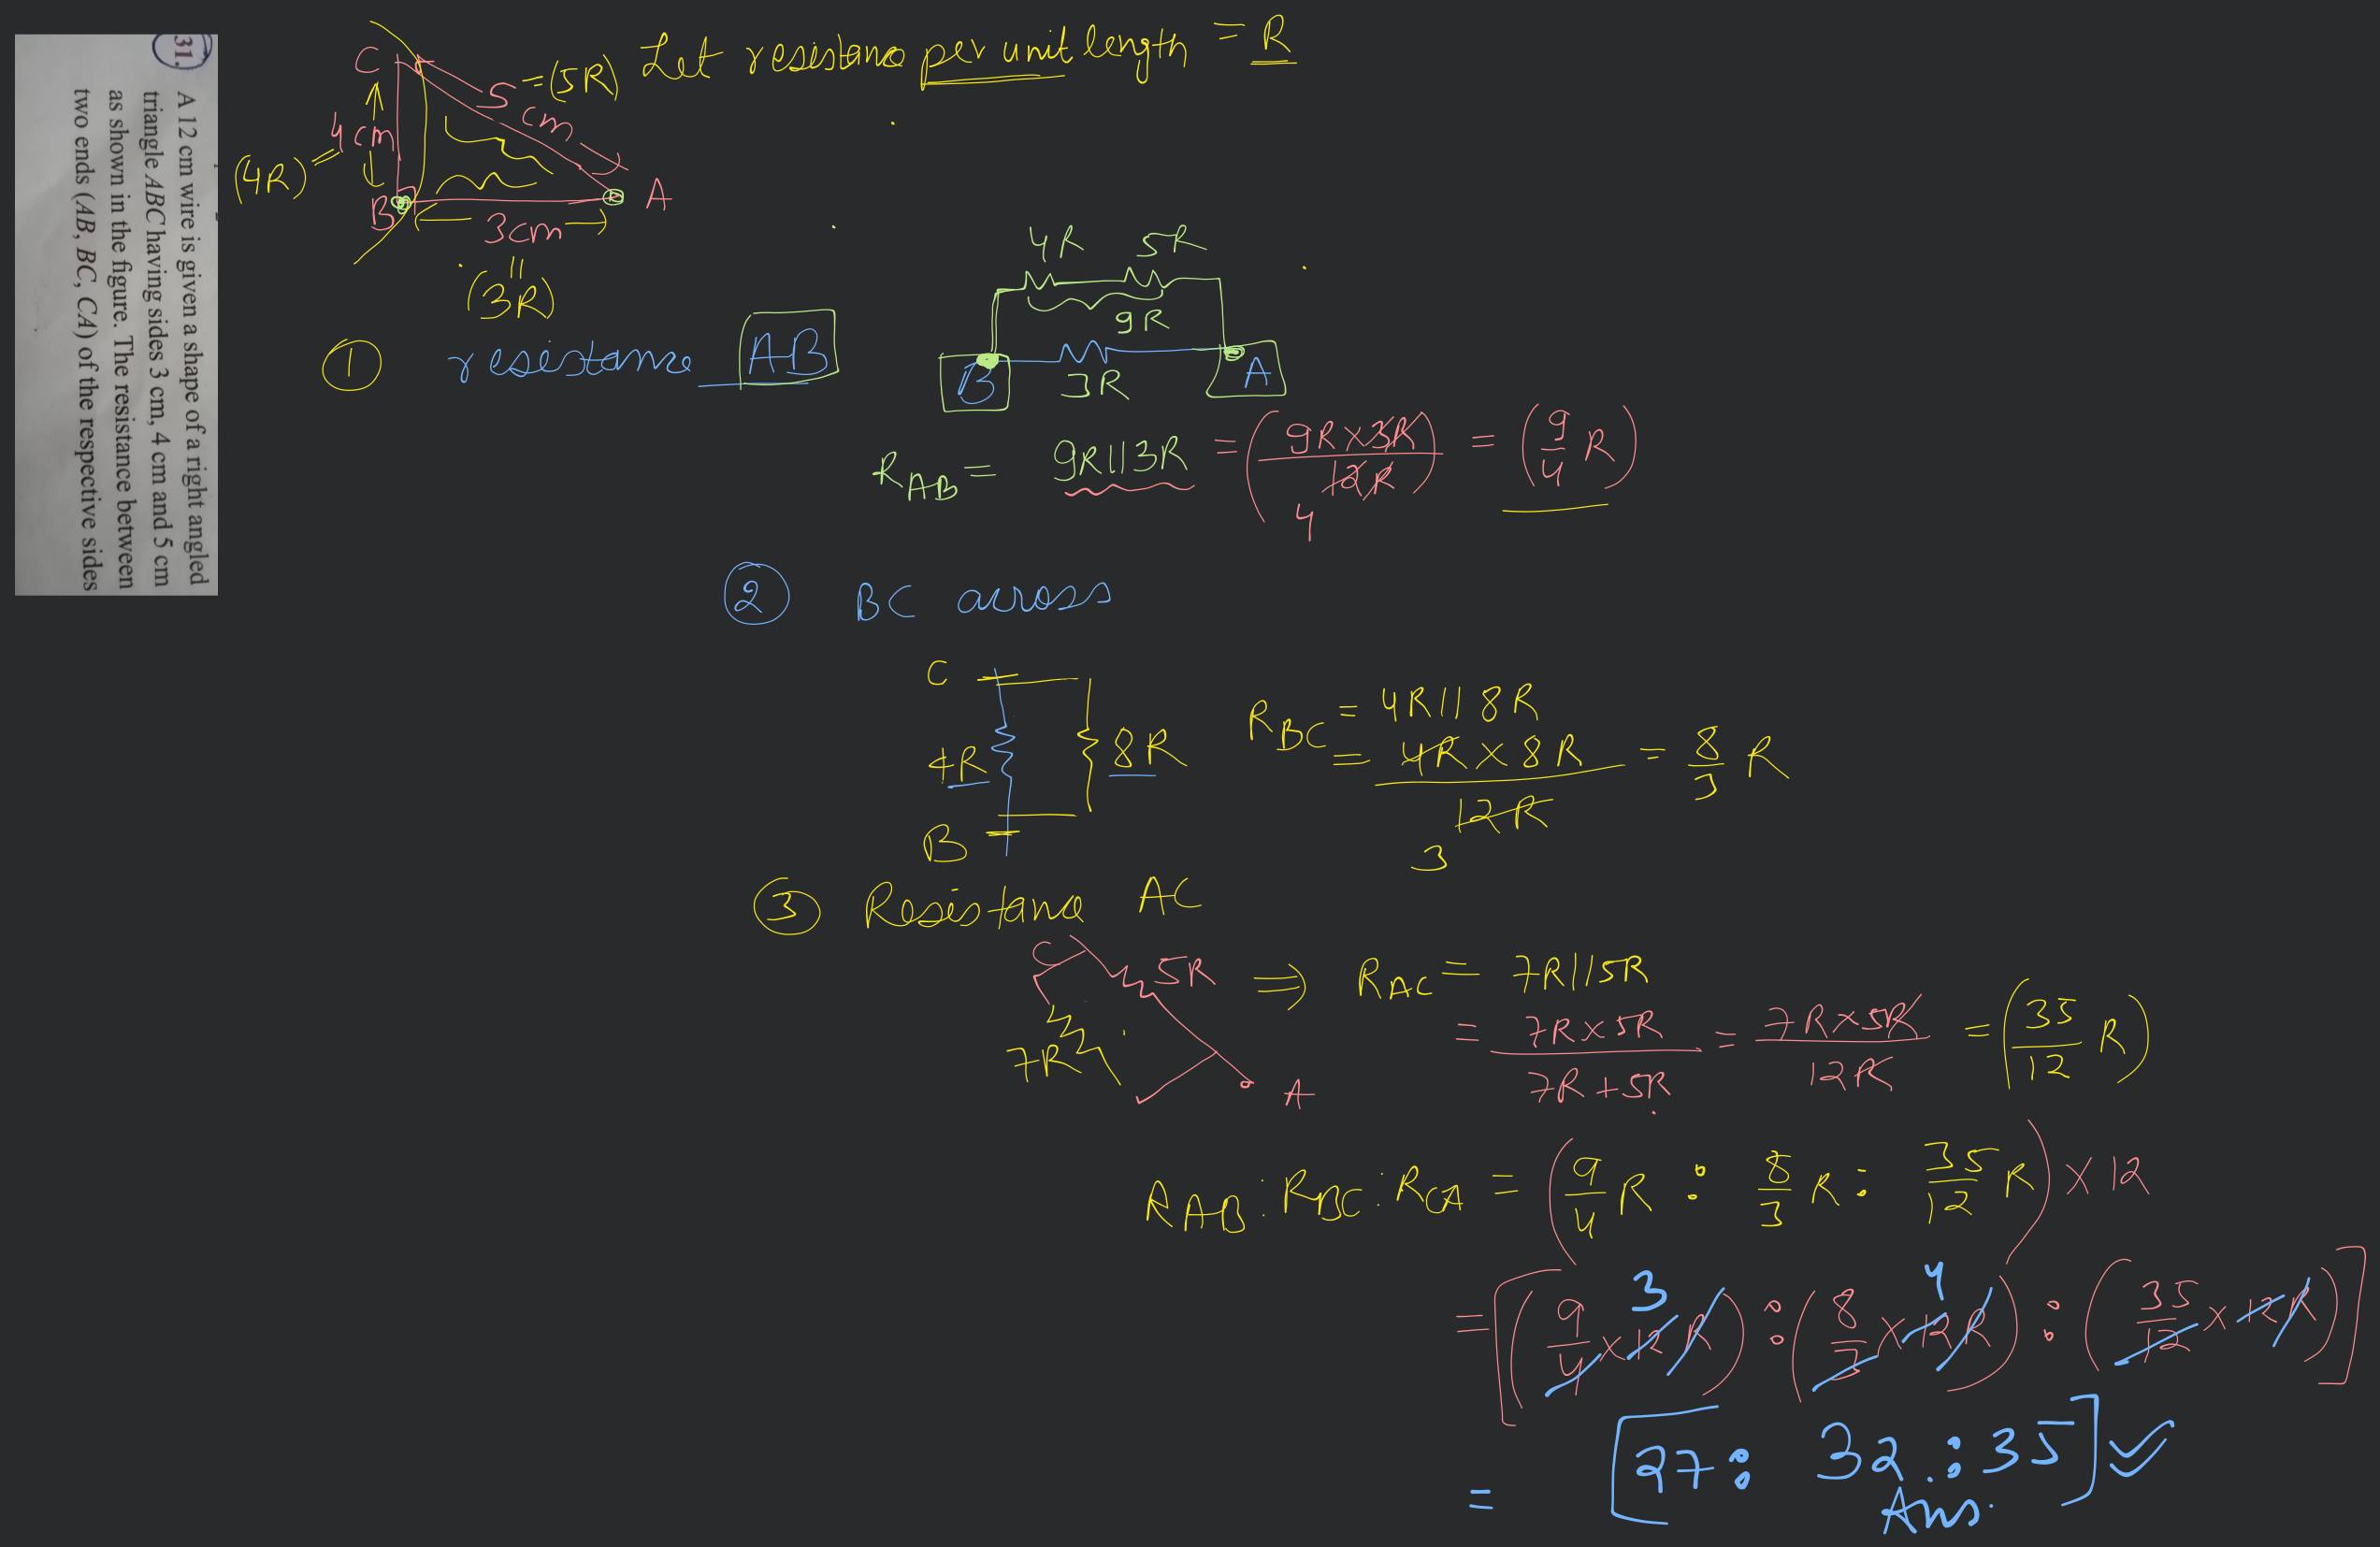 31. A 12 cm wire is given a shape of a right angled
triangle ABC having sides 3 cm, 4 cm and 5 cm
as shown in the figure. The resistance between
two ends (AB, BC, CA) of the respective sides
Let resistance per unit length = R
C
5 cm = (5R)
(4R) = 4cm
B
A
3cm
||
(3R)
① resistance AB
4R 5R
9R
B 3R A
R_AB = 9R||3R = (9R×3R / 12R) = (9/4 R)
4
② BC across
C
4R 8R
B
R_BC = 4R||8R
= 4R × 8R / 12R = 8/3 R
3
③ Resistance AC
C 5R
7R
A
⇒ R_AC = 7R||5R
= 7R×5R / 7R+5R = 7R×5R / 12R = (35/12 R)
R_AB : R_BC : R_CA = (9/4 R : 8/3 R : 35/12 R) × 12
= [(9/4 × 12 R) : (8/3 × 12 R) : (35/12 × 12 R)]
3 4
= [27 : 32 : 35]
Ans.